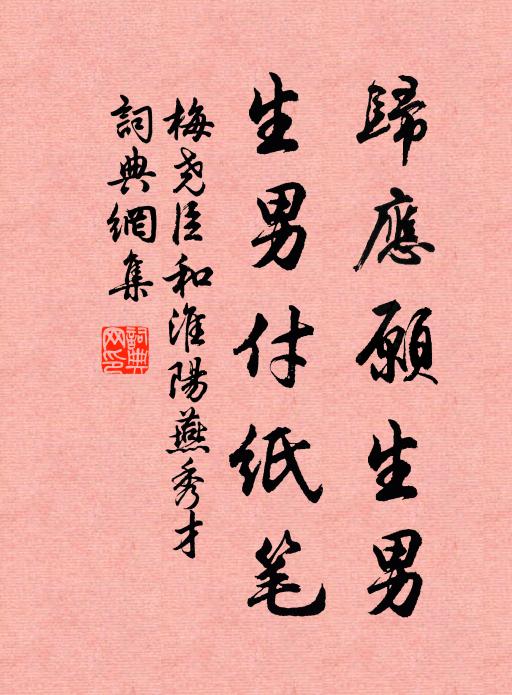 歸應願生男
生男付纸笔
梅尧臣和淮陽燕秀才
詞典網集
詞典网印